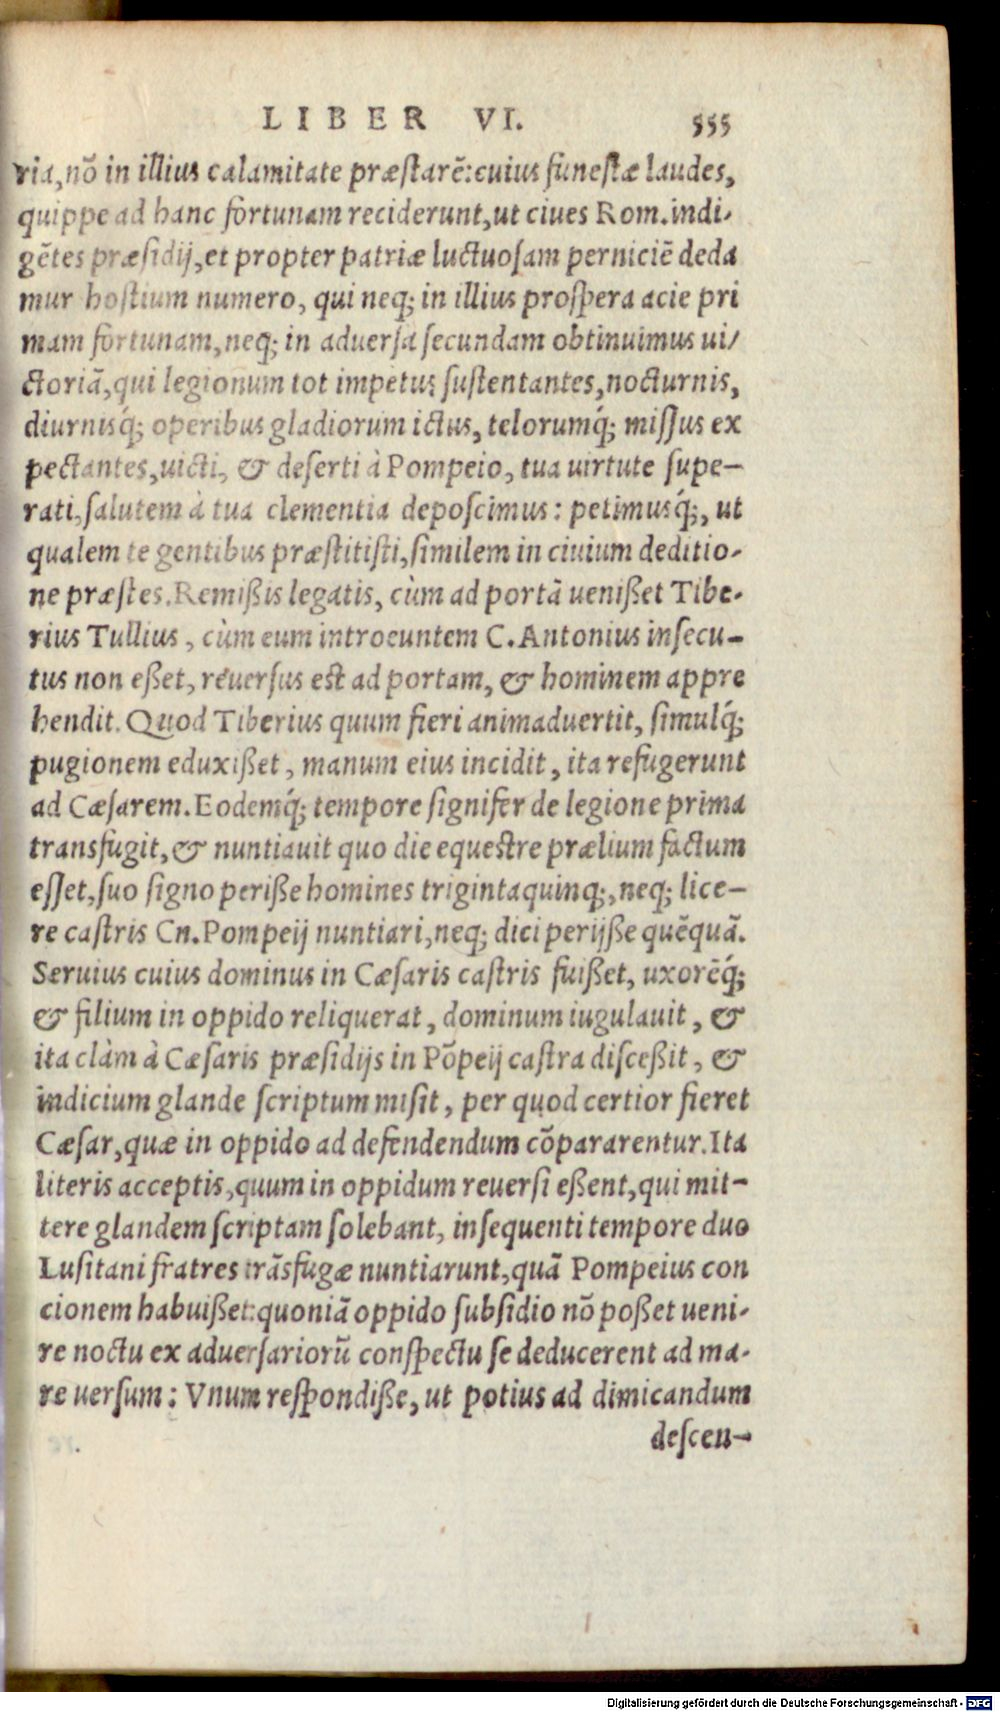 LIBER VI. 555
ria, nõ in illius calamitate præstarẽ: cuius funestæ laudes,
quippe ad hanc fortunam reciderunt, ut ciues Rom. indi-
gẽtes præsidij, et propter patriæ luctuosam perniciẽ deda
mur hostium numero, qui neq; in illius prospera acie pri
mam fortunam, neq; in aduersa secundam obtinuimus ui/
ctoriã, qui legionum tot impetus sustentantes, nocturnis,
diurnisq́; operibus gladiorum ictus, telorumq́; missus ex
pectantes, uicti, & deserti à Pompeio, tua uirtute supe-
rati, salutem à tua clementia deposcimus: petimusq́;, ut
qualem te gentibus præstitisti, similem in ciuium deditio-
ne præstes. Remißis legatis, cùm ad portã uenißet Tibe-
rius Tullius, cùm eum introeuntem C. Antonius insecu-
tus non eßet, reuersus est ad portam, & hominem appre
hendit. Quod Tiberius quum fieri animaduertit, simulq́;
pugionem eduxißet, manum eius incidit, ita refugerunt
ad Cæsarem. Eodemq́; tempore signifer de legione prima
transfugit, & nuntiauit quo die equestre prælium factum
esset, suo signo perißse homines trigintaquinq;, neq; lice-
re castris Cn. Pompeij nuntiari, neq; dici perijße quẽquã.
Seruius cuius dominus in Cæsaris castris fuißet, uxorẽq́;
& filium in oppido reliquerat, dominum iugulauit, &
ita clàm à Cæsaris præsidijs in Põpeij castra disceßit, &
indicium glande scriptum misit, per quod certior fieret
Cæsar, quæ in oppido ad defendendum cõpararentur. Ita
literis acceptis, quum in oppidum reuersi eßent, qui mit-
tere glandem scriptam solebant, insequenti tempore duo
Lusitani fratres trãsfugæ nuntiarunt, quã Pompeius con
cionem habuißet: quoniã oppido subsidio nõ poßet ueni-
re noctu ex aduersariorũ conspectu se deducerent ad ma-
re uersum: Vnum respondiße, ut potius ad dimicandum
descen-
Digitalisierung gefördert durch die Deutsche Forschungsgemeinschaft - DFG